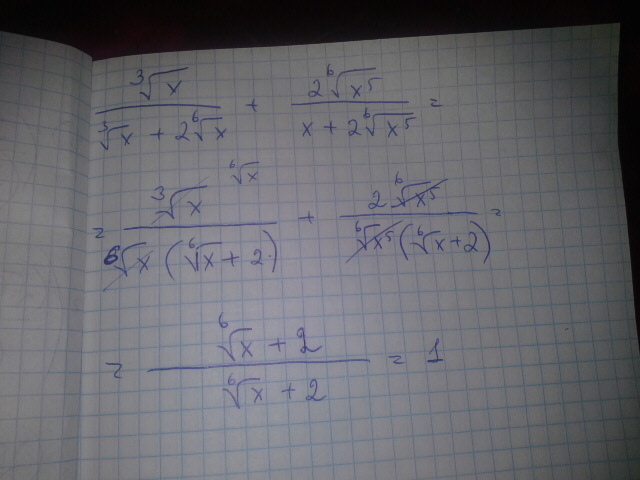 ∛x / (∛x + 2⁶√x) + 2⁶√x⁵ / (x + 2⁶√x⁵) =
= ∛x ⁶√x / (⁶√x (⁶√x + 2)) + 2⁶√x⁵ / (⁶√x⁵ (⁶√x + 2)) =
= (⁶√x + 2) / (⁶√x + 2) = 1